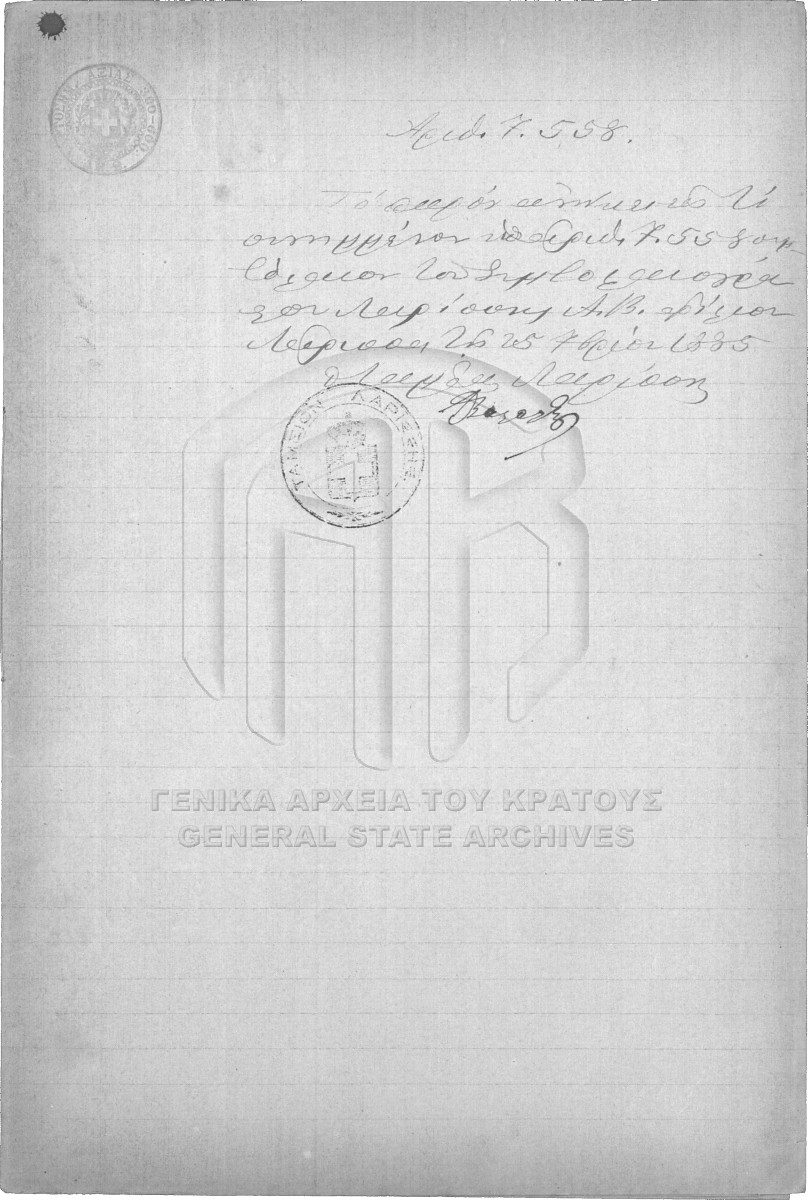 Αριθ. 7.558.
Τό παρόν ανήκει εις τό
συνημμένον υπ αριθ. 7.558 συμ
βόλαιον του Συμβολαιογρά
φου Λαρίσσης Α.Β.
Λάρισσα τη 25 7βρίου 1885
ο Ταμίας Λαρίσσης
ΤΑΜΕΙΟΝ ΛΑΡΙΣΣΗΣ
ΓΕΝΙΚΑ ΑΡΧΕΙΑ ΤΟΥ ΚΡΑΤΟΥΣ
GENERAL STATE ARCHIVES